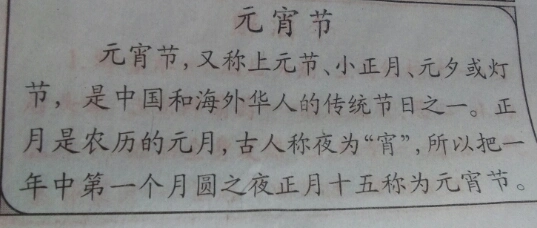 元宵节
元宵节，又称上元节、小正月、元夕或灯
节，是中国和海外华人的传统节日之一。正
月是农历的元月，古人称夜为“宵”，所以把一
年中第一个月圆之夜正月十五称为元宵节。